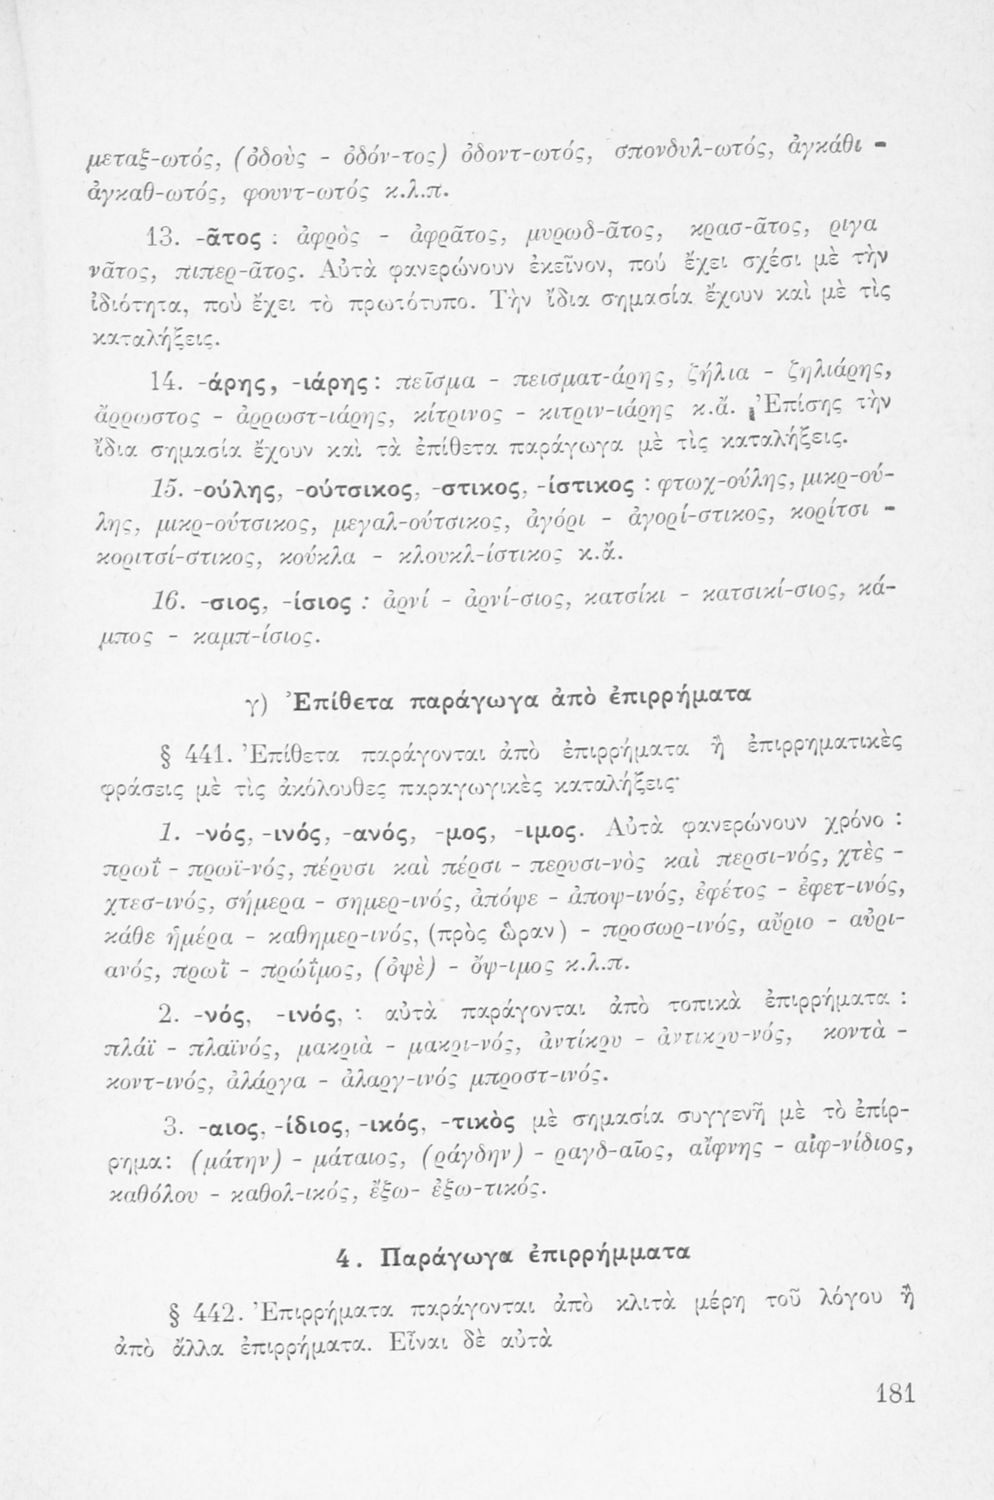 μεταξ-ωτός, (ὀδοὺς - ὀδόν-τος) ὀδοντ-ωτός, σπονδυλ-ωτός, ἀγκάθι -
ἀγκαθ-ωτός, φουντ-ωτός κ.λ.π.
13. -ᾶτος : ἀφρὸς - ἀφρᾶτος, μυρωδ-ᾶτος, κρασ-ᾶτος, ριγα
νᾶτος, πιπερ-ᾶτος. Αὐτὰ φανερώνουν ἐκεῖνον, πού ἔχει σχέσι μὲ τὴν
ἰδιότητα, ποὺ ἔχει τὸ πρωτότυπο. Τὴν ἴδια σημασία ἔχουν καὶ μὲ τὶς
καταλήξεις.
14. -άρης, -ιάρης: πεῖσμα - πεισματ-άρης, ζήλια - ζηλιάρης,
ἄρρωστος - ἀρρωστ-ιάρης, κίτρινος - κιτριν-ιάρης κ.ἄ. Ἐπίσης τὴν
ἴδια σημασία ἔχουν καὶ τὰ ἐπίθετα παράγωγα μὲ τὶς καταλήξεις.
15. -ούλης, -ούτσικος, -στικος, -ίστικος : φτωχ-ούλης, μικρ-ού-
λης, μικρ-ούτσικος, μεγαλ-ούτσικος, ἀγόρι - ἀγορί-στικος, κορίτσι -
κοριτσί-στικος, κούκλα - κλουκλ-ίστικος κ.ἄ.
16. -σιος, -ίσιος : ἀρνί - ἀρνί-σιος, κατσίκι - κατσικί-σιος, κά-
μπος - καμπ-ίσιος.
γ) Ἐπίθετα παράγωγα ἀπὸ ἐπιρρήματα
§ 441. Ἐπίθετα παράγονται ἀπὸ ἐπιρρήματα ἢ ἐπιρρηματικὲς
φράσεις μὲ τὶς ἀκόλουθες παραγωγικὲς καταλήξεις·
1. -νός, -ινός, -ανός, -μος, -ιμος. Αὐτὰ φανερώνουν χρόνο :
πρωΐ - πρωϊ-νός, πέρυσι καὶ πέρσι - περυσι-νὸς καὶ περσι-νός, χτὲς -
χτεσ-ινός, σήμερα - σημερ-ινός, ἀπόψε - ἀποψ-ινός, ἐφέτος - ἐφετ-ινός,
κάθε ἡμέρα - καθημερ-ινός, (πρὸς ὥραν) - προσωρ-ινός, αὔριο - αὐρι-
ανός, πρωΐ - πρώϊμος, (ὀψὲ) - ὄψ-ιμος κ.λ.π.
2. -νός, -ινός, : αὐτὰ παράγονται ἀπὸ τοπικὰ ἐπιρρήματα :
πλάϊ - πλαϊνός, μακριὰ - μακρι-νός, ἀντίκρυ - ἀντικρυ-νός, κοντὰ -
κοντ-ινός, ἀλάργα - ἀλαργ-ινός μπροστ-ινός.
3. -αιος, -ίδιος, -ικός, -τικὸς μὲ σημασία συγγενῆ μὲ τὸ ἐπίρ-
ρημα: (μάτην) - μάταιος, (ράγδην) - ραγδ-αῖος, αἴφνης - αἰφ-νίδιος,
καθόλου - καθολ-ικός, ἔξω- ἐξω-τικός.
4. Παράγωγα ἐπιρρήμματα
§ 442. Ἐπιρρήματα παράγονται ἀπὸ κλιτὰ μέρη τοῦ λόγου ἢ
ἀπὸ ἄλλα ἐπιρρήματα. Εἶναι δὲ αὐτὰ
181